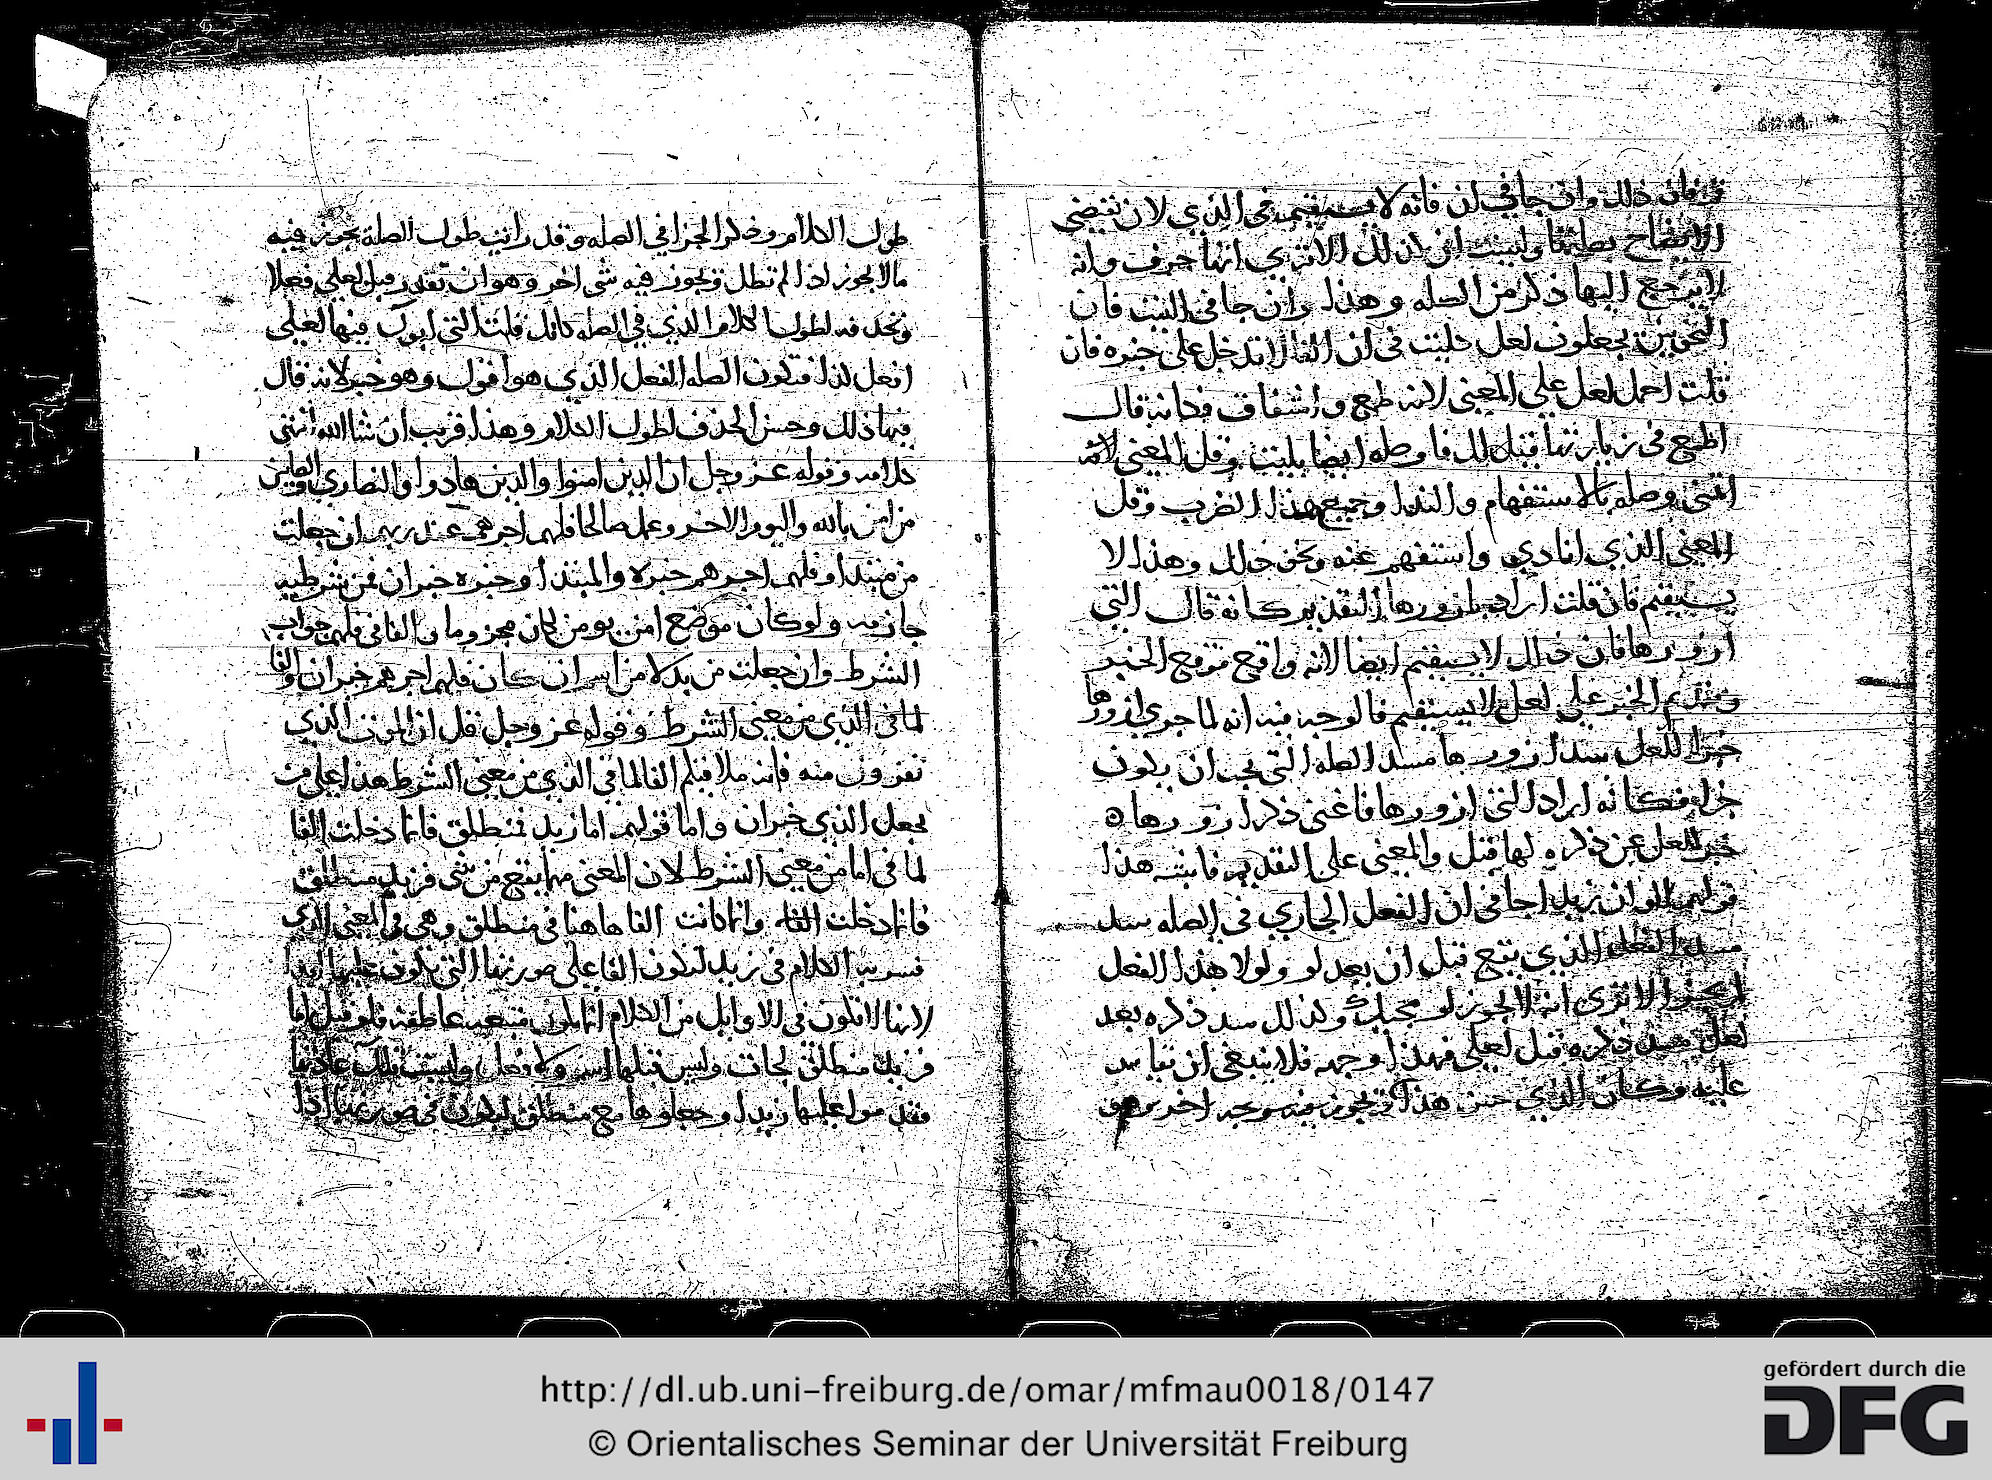 فان ذلك وان جا في ان فانه لا يستقيم في الذي لان تقتضي
الايضاح بصلتها وليست ان كذلك الا تري انها حرف وانه
لا يرجع اليها ذكر من الصله وهذا وان جا في البيت فان
النحويين يجعلون لعل كليت في ان الفا لا تدخل على خبره فان
قلت احمل لعل علي المعني لانه طمع واشفاق فكانه قال
اطمع في زيارتها قيل لك فاوصله ايضا بليت وقل المعني لانه
اتمني وصله بالاستفهام والندا وجميع هذا الضرب وقل
المعني الذي انادي واستفهم عنه ونحو ذلك وهذا لا
يستقيم فان قلت اراد ازورها التقدير كانه قال التي
ازورها فان ذلك لا يستقيم ايضا لانه واقع موقع الخبر
وتقديم الخبر علي لعل لا يستقيم فالوجه فيه انه لما جري ازورها
خبرا للعل سد ازورها مسد الصله التي يجب ان يكون
خبرا فكانه اراد التي ازورها فاغني ذكر ازورها
خبر لعل عن ذكره لها قبل والمعني علي التقديم فاشبه هذا
قولهم لو ان زيدا جا في ان الفعل الجاري في الصله سد
مسد الفعل الذي يقع قبل ان بعد لو ولولا هذا الفعل
لم يجز الا تري انه لا يجوز لو مجيك وكذلك سد ذكره بعد
لعل مسد ذكره قبل لعلي فهذا وجه فلا ينبغي ان يقاس
عليه وكان الذي حسن هذا يجوز فيه وجه اخر وهو
طول الكلام وذكر الجزا في الصله وقد رايت طول الصله يجوز فيه
مالا يجوز اذا لم تطل ويجوز فيه شي اخر وهو ان تقدر قبل لعلي فعلا
وتحذفه لطول الكلام الذي في الصله كانك قلت التي اقول فيها لعلي
افعل كذا فتكون الصله الفعل الذي هو اقول وهو خبر لانه قال
فيها ذلك وحسن الحذف لطول الكلام وهذا قريب ان شا الله انتهي
كلامه وقوله عز وجل ان الذين امنوا والذين هادوا والنصاري والصابين
من امن بالله واليوم الاخر وعمل صالحا فلهم اجرهم عند ربهم ان جعلت
من مبتدا وفلهم اجرهم خبره والمبتدا وخبره خبر ان فمن شرطيه
جازمه ولو كان موضع امن يومن لكان مجزوما والفا في فلهم جواب
الشرط وان جعلت من بدلا من اسم ان كان فلهم اجرهم خبر ان والفا
لما في الذي من معني الشرط وقوله عز وجل قل ان الموت الذي
تفرون منه فانه ملاقيكم الفا لما في الذي من معني الشرط هذا علي من
يجعل الذي خبر ان واما قولهم اما زيد فمنطلق فانما دخلت الفا
لما في اما من معني الشرط لان المعني مهما يقع من شي فزيد منطلق
فانما دخلت الفا وانما كانت الفا هاهنا في منطلق وهي في المعني الذي
فسر به الكلام في زيد لتكون الفا علي صورتها التي تكون عليها ابدا
لانها لا تكون في الاوايل من الكلام انما تكون متبعه عاطفه فلو قيل اما
فزيد منطلق لجات وليس قبلها اسم ولا فعل وليست تلك عادتها
فقدموا عليها زيدا وجعلوها مع منطلق لتكون في صورتها اذا
http://dl.ub.uni-freiburg.de/omar/mfmau0018/0147
© Orientalisches Seminar der Universität Freiburg
gefördert durch die
DFG